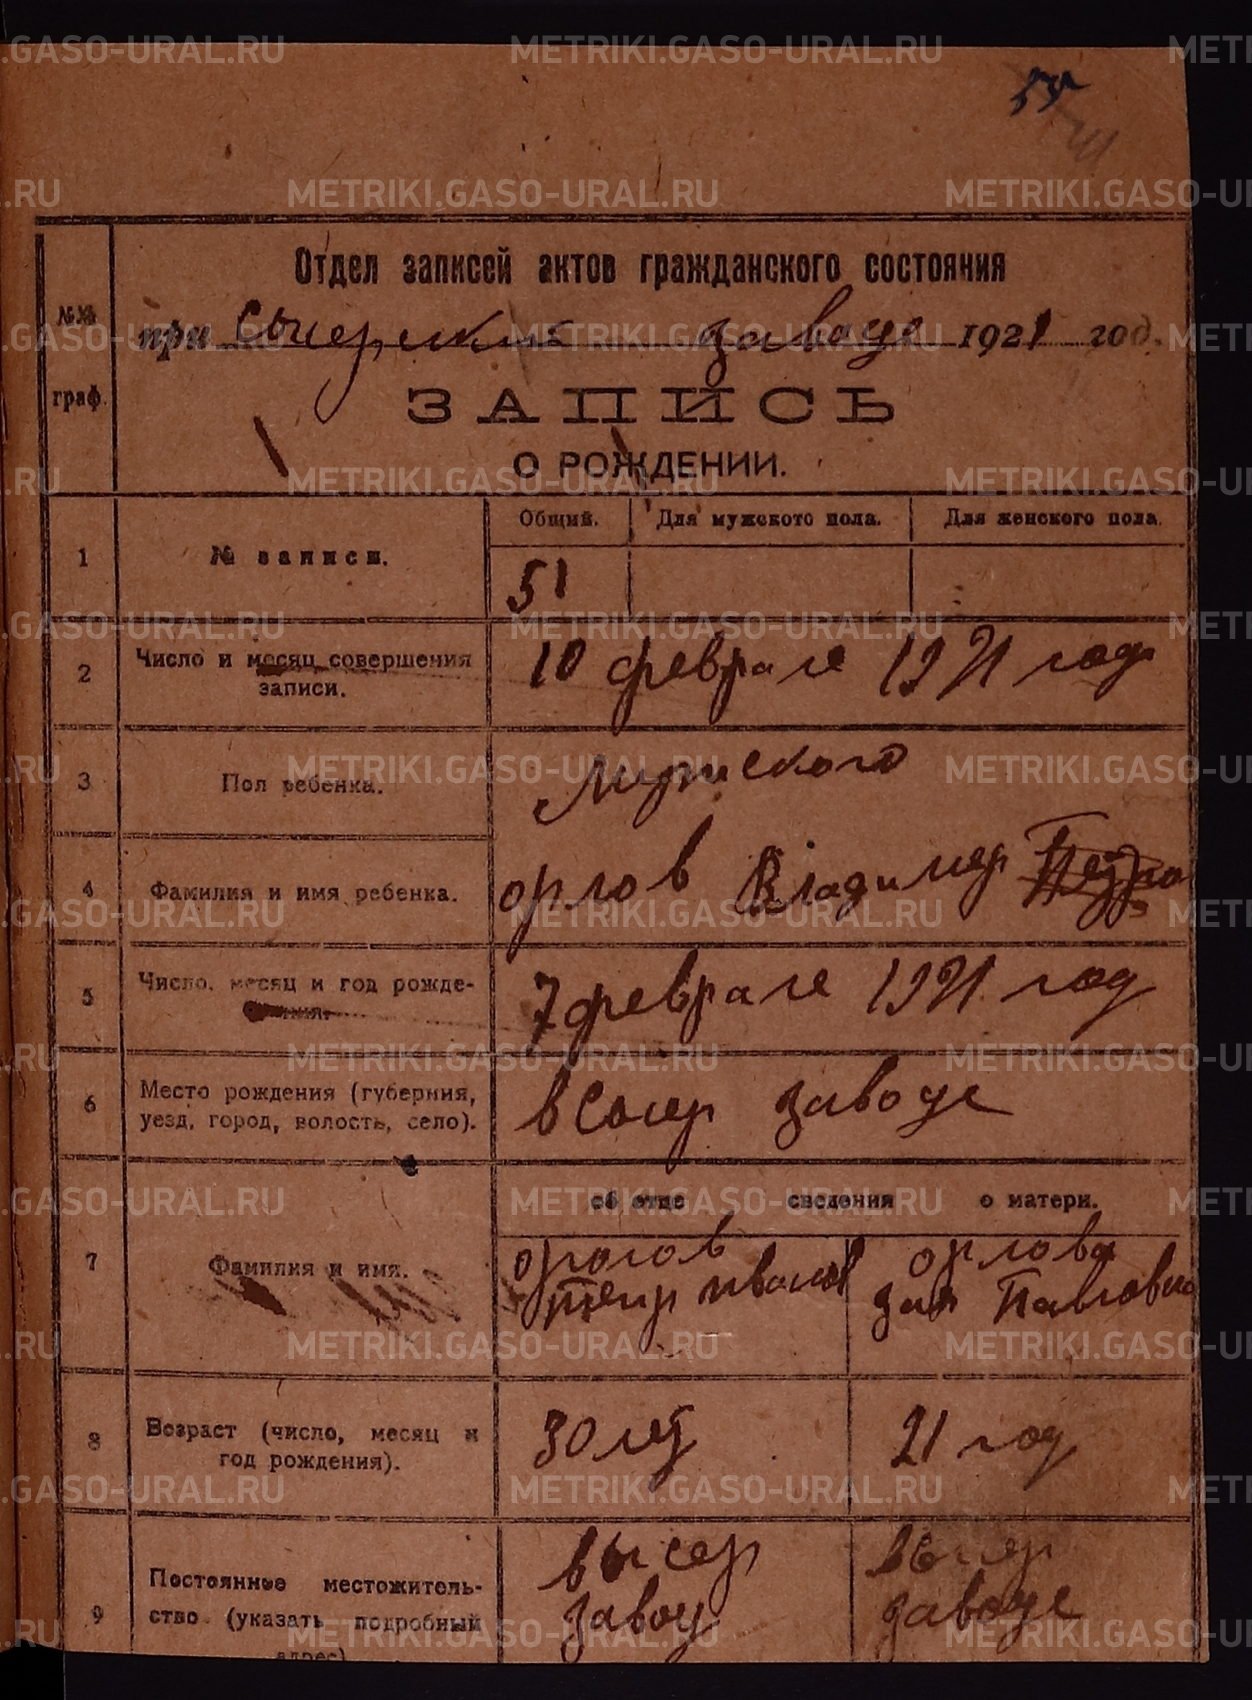 55
Отдел записей актов гражданского состояния
при заводе 1921 год.
№№ граф.
ЗАПИСЬ
О РОЖДЕНИИ.
Общий. Для мужского пола. Для женского пола.
1 № записи. 51
2 Число и месяц совершения записи. 10 феврале 1921 год
3 Пол ребенка. Мужского
4 Фамилия и имя ребенка. орлов Владимер
5 Число, месяц и год рожде-
ния. 7 феврале 1921 год
6 Место рождения (губерния, уезд, город, волость, село). в Сысер заводе
об отце сведения о матери.
7 Фамилия и имя. орлова
Павловна
8 Возраст (число, месяц и год рождения). 30 лет 21 год
9 Постоянное местожитель-
ство (указать подробный адрес) высер
завод заводе
METRIKI.GASO-URAL.RU